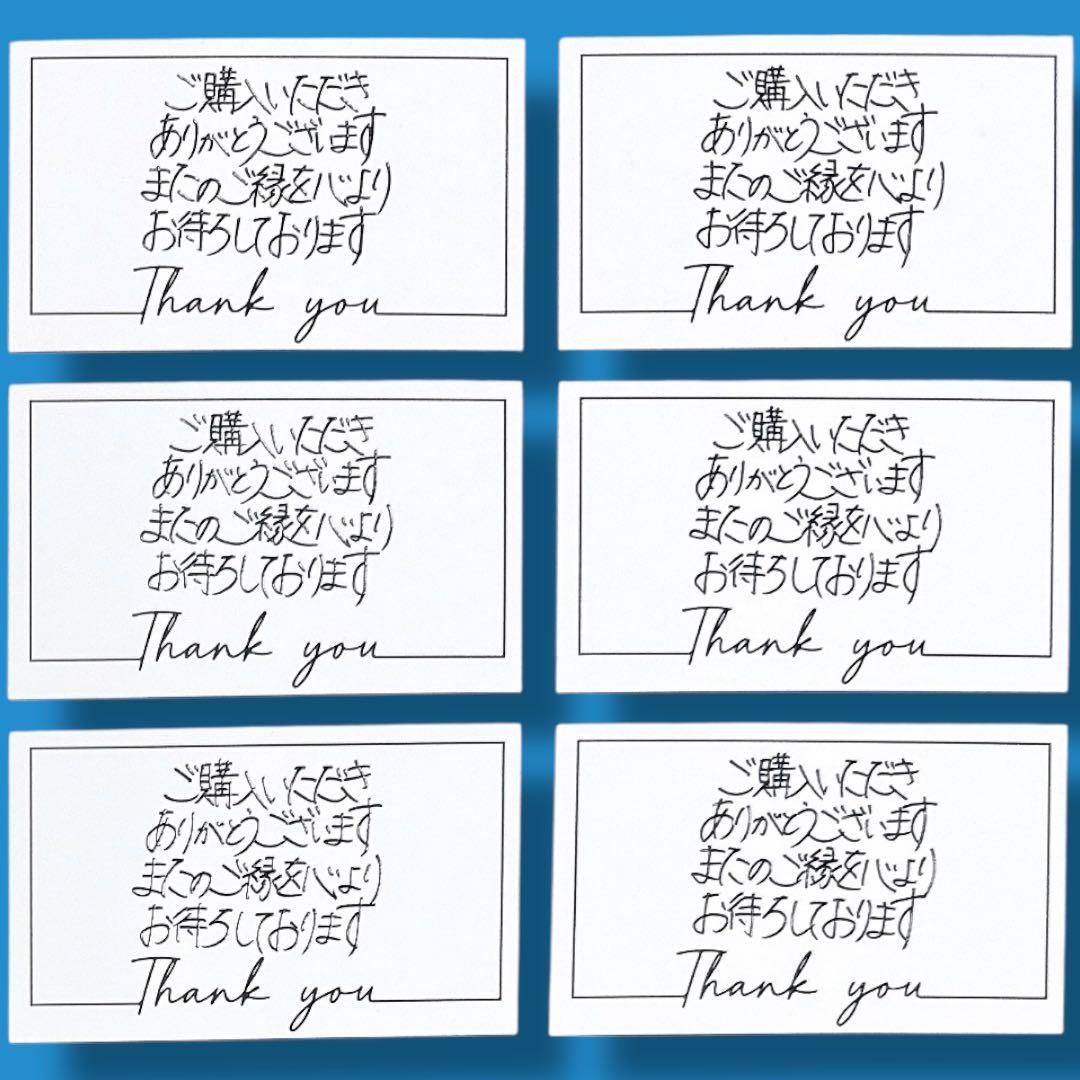 ご購入いただき
ありがとうございます
またのご縁を心より
お待ちしております
Thank you
ご購入いただき
ありがとうございます
またのご縁を心より
お待ちしております
Thank you
ご購入いただき
ありがとうございます
またのご縁を心より
お待ちしております
Thank you
ご購入いただき
ありがとうございます
またのご縁を心より
お待ちしております
Thank you
ご購入いただき
ありがとうございます
またのご縁を心より
お待ちしております
Thank you
ご購入いただき
ありがとうございます
またのご縁を心より
お待ちしております
Thank you